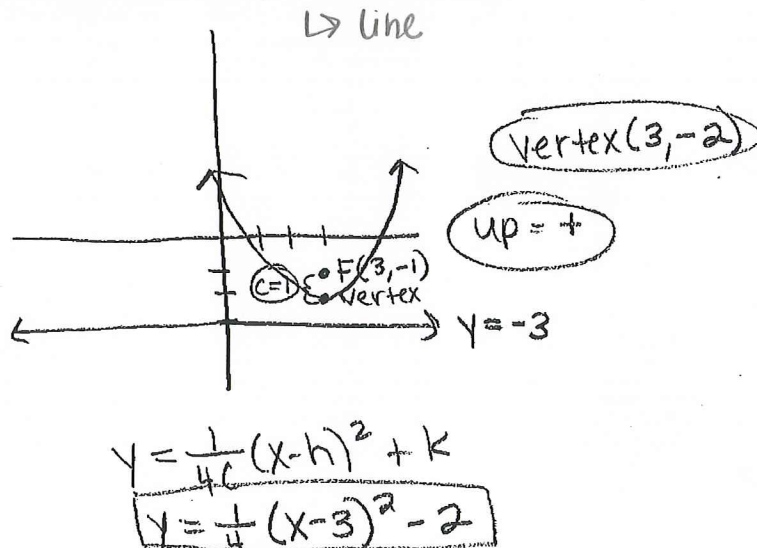 ↳ line
vertex (3, -2)
up = +
F(3, -1)
c=1
vertex
y = -3
y = 1/4c (x-h)² + k
y = 1/4 (x-3)² - 2